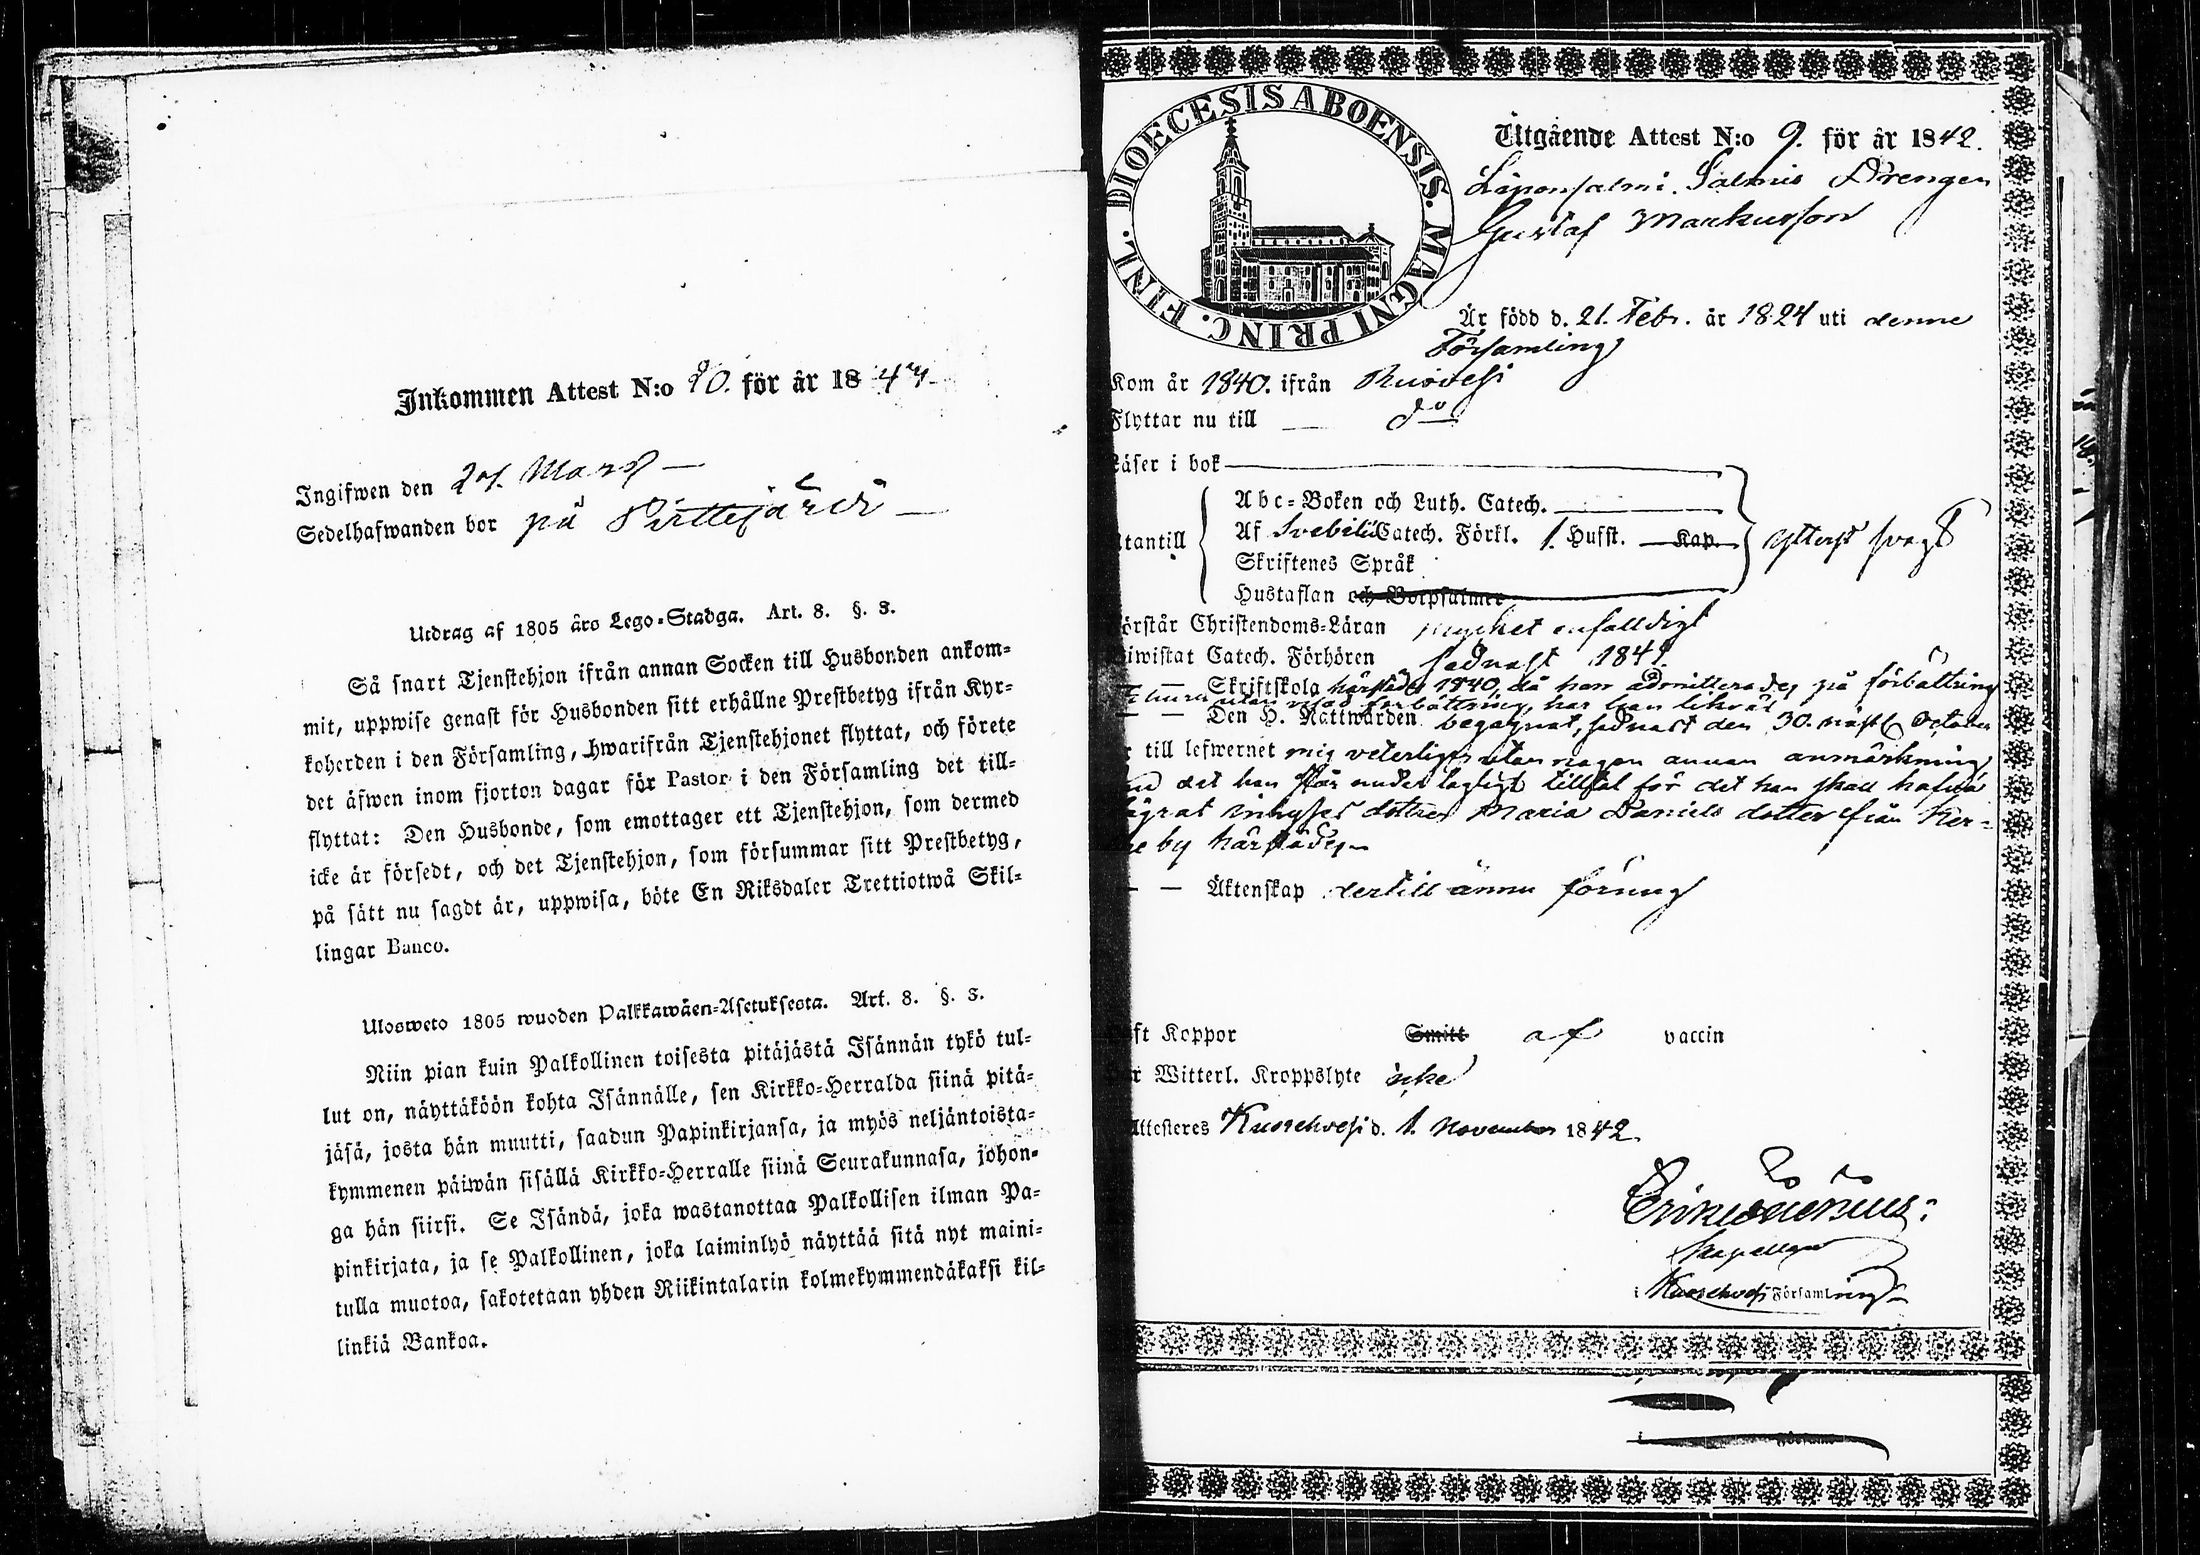 Inkommen Attest N:o 20. för år 1844
Ingifwen den 27. Mars
Sedelhafwanden bor på Pirttejärvi
Utdrag af 1805 års Lego-Stadga. Art. 8. §. 3.
Så snart Tjenstehjon ifrån annan Socken till Husbonden ankom-
mit, uppwise genast för Husbonden sitt erhållne Prestbetyg ifrån Kyr-
koherden i den Församling, hwarifrån Tjenstehjonet flyttat, och förete
det äfwen inom fjorton dagar för Pastor i den Församling det till-
flyttat: Den Husbonde, som emottager ett Tjenstehjon, som dermed
icke är försedt, och det Tjenstehjon, som försummar sitt Prestbetyg,
på sätt nu sagdt är, uppwisa, böte En Riksdaler Trettiotwå Skil-
lingar Banco.
Ulosweto 1805 wuoden Palkkawäen-Asetuksesta. Art. 8. §. 3.
Niin pian kuin Palkollinen toisesta pitäjästä Isännän tykö tul-
lut on, näyttäköön kohta Isännälle, sen Kirkko-Herralda siinä pitä-
jäsä, josta hän muutti, saadun Papinkirjansa, ja myös neljäntoista-
kymmenen päiwän sisällä Kirkko-Herralle siinä Seurakunnasa, johon-
ga hän siirsi. Se Isändä, joka wastanottaa Palkollisen ilman Pa-
pinkirjata, ja se Palkollinen, joka laiminlyö näyttää sitä nyt maini-
tulla muotoa, sakotetaan yhden Riikintalarin kolmekymmendäkaksi kil-
linkiä Bankoa.
DIOECESIS ABOENSIS. MAGNI PRINC. FINL.
Utgående Attest N:o 9. för år 1842.
Salmis Drengen
Gustaf Markusson
Är född d. 21. Febr. år 1824 uti denne
Församling
Kom år 1840. ifrån Ruovesi
Flyttar nu till do
Läser i bok
Abc-Boken och Luth. Catech.
Utantill Af Svebilii Catech. Förkl. 1. Hufst. Kap. ytterst svagt
Skriftenes Språk
Hustaflan och Botpsalmer
Förstår Christendoms-Läran mycket enfalldigt
Biwistat Catech. Förhören sednast 1841
Skriftskola härstädes 1840, då han admitterades på förbättring
förbättring, har han likväl
Den H. Nattwarden begagnat, sednast den 30. näst October
Är till lefwernet mig veterligen utan någon annan anmärkning
än det han står under lagligt tilltal för det han skall hafva
lägrat inhyses dottren Maria Daniels dotter från Ker-
by härstädes
Äktenskap dertill ännu för ung
Haft Koppor Smitt af vaccin
Har Witterl. Kroppslyte icke
Attesteres Kuorehvesi d. 1. November 1842.
Kapellan
i Kuorehvesi Församling